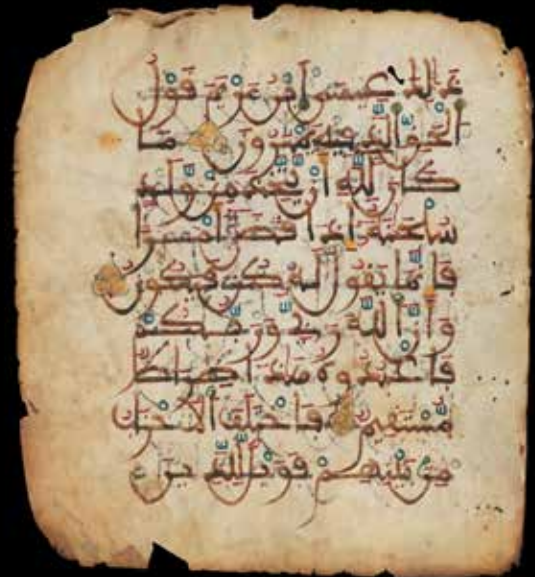 ذلك عيسى ابن مريم قول
الحق الذي فيه يمترون ما
كان لله أن يتخذ من ولد
سبحنه إذا قضى أمرا
فإنما يقول له كن فيكون
وأن الله ربي وربكم
فاعبدوه هذا صراط
مستقيم فاختلف الأحزاب
من بينهم فويل للذين